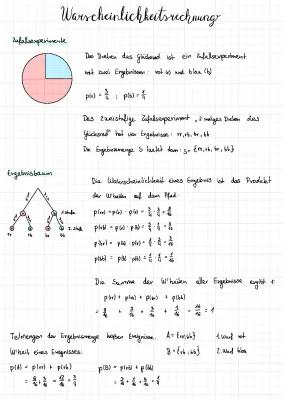 Warscheinlichkeitsrechnung
Zufallsexperimente
Das Drehen des Glücksrad ist ein Zufallsexperiment
mit zwei Ergebnissen: rot (r) und blau (b)
p(r) = 3/4 ; p(b) = 1/4
Das zweistufige Zufallsexperiment, 2 maliges Drehen des
Glücksrad hat vier Ergebnisse: rr, rb, br, bb
Die Ergebnismenge S lautet dann: S = {rr, rb, br, bb}
Ergebnisbaum
Die Wahrscheinlichkeit eines Ergebnis ist das Produkt
der W'keiten auf dem Pfad:
1. Stufe
2. Stufe
rr rb br bb
p(rr) = p(r) · p(r) =
p(rb) = p(r) · p(b) =
p(br) = p(b) · p(r) =
p(bb) = p(b) · p(b) =
Die Summe der W'keiten aller Ergebnisse ergibt 1:
p(rr) + p(rb) + p(br) + p(bb)
= 9/16 + 3/16 + 3/16 + 1/16 = 16/16 = 1
Teilmengen der Ergebnismenge heißen Ereignisse.
W'keit eines Ereignisses:
p(A) = p(rr) + p(rb)
p(B) = p(rb) + p(bb)